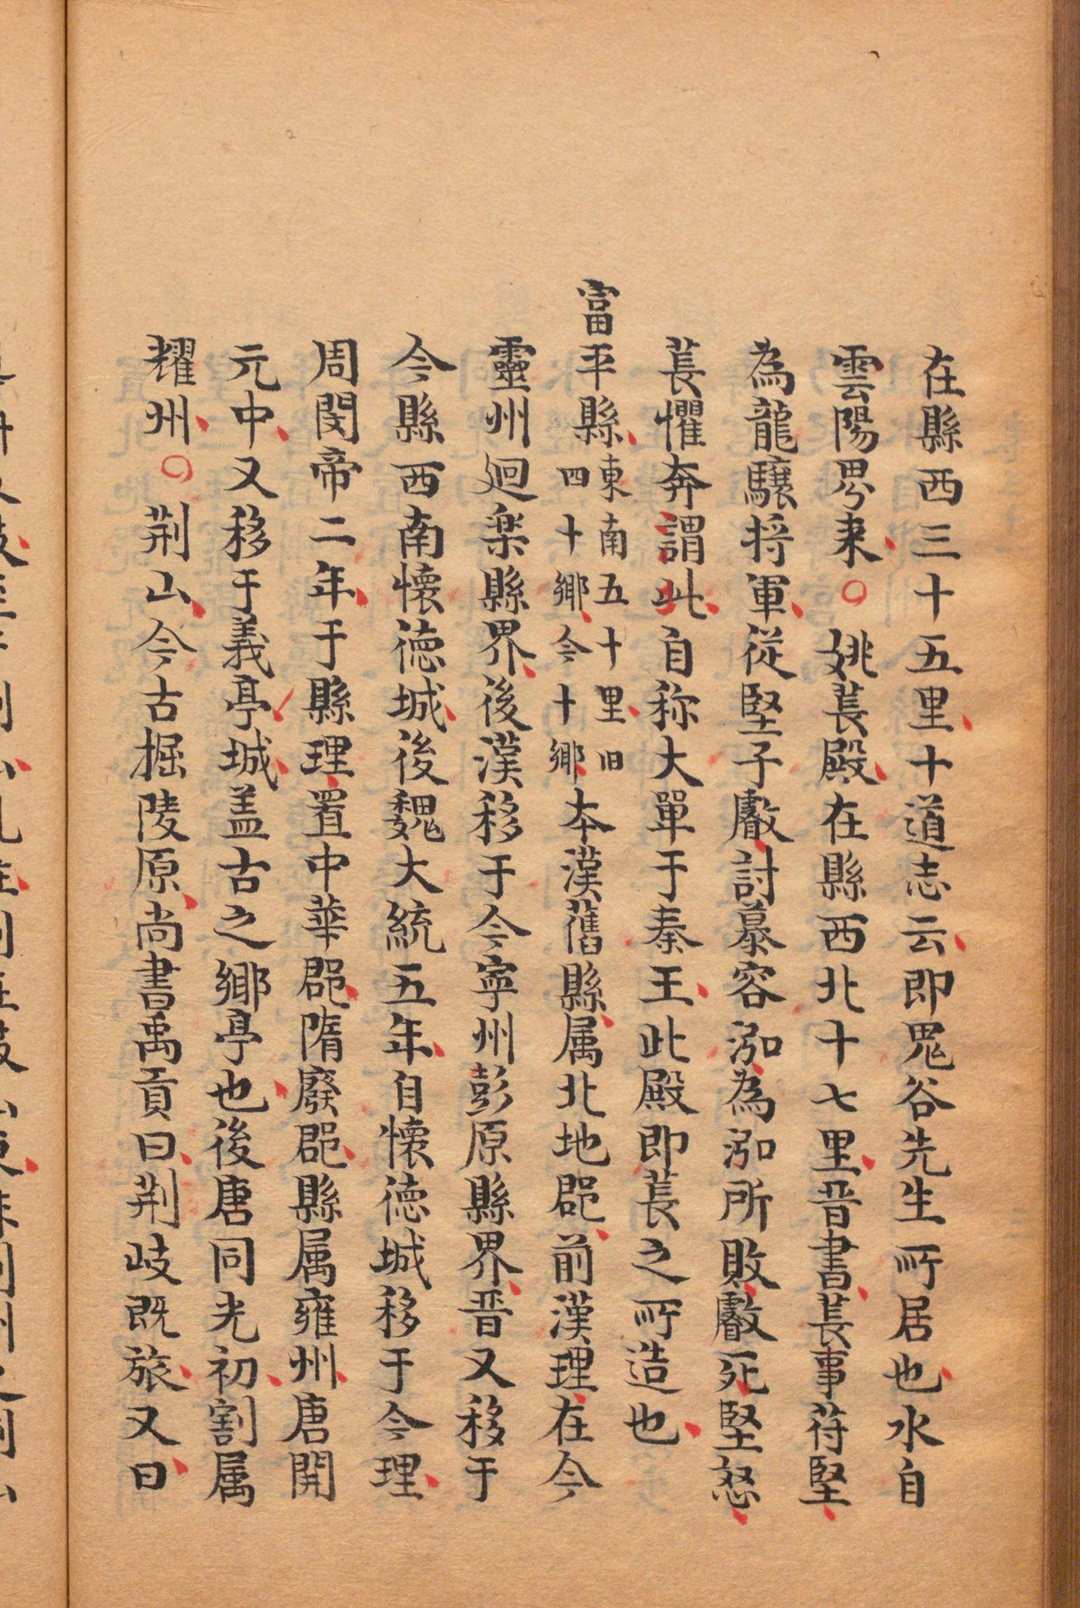 在縣西三十五里十道志云即鬼谷先生所居也水自
雲陽界来○姚萇殿在縣西北十七里晋書萇事苻堅
為龍驤将軍従堅子叡討慕容泓為泓所敗叡死堅怒
萇懼奔謂此自称大單于秦王此殿即萇之所造也
富平縣東南五十里旧四十鄉今十鄉本漢舊縣属北地郡前漢理在今
靈州迴楽縣界後漢移于今寜州彭原縣界晋又移于
今縣西南懷徳城後魏大統五年自懷徳城移于今理
周閔帝二年于縣理置中華郡隋廢郡縣属雍州唐開
元中又移于義亭城盖古之鄉亭也後唐同光初割属
耀州○荆山今古掘陵原尚書禹貢曰荆岐既旅又曰